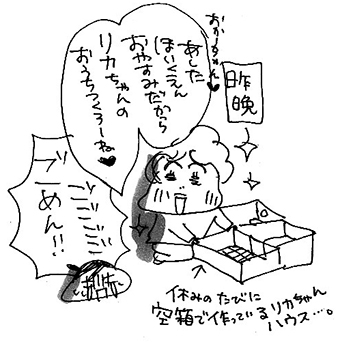 昨晩
おかーちゃん♥
あした
ほいくえん
おやすみだから
リカちゃんの
おうちつくろーね♥
ゴゴゴゴゴ
めん!!
休みのたびに
空箱で作っているリカちゃん
ハウス…。